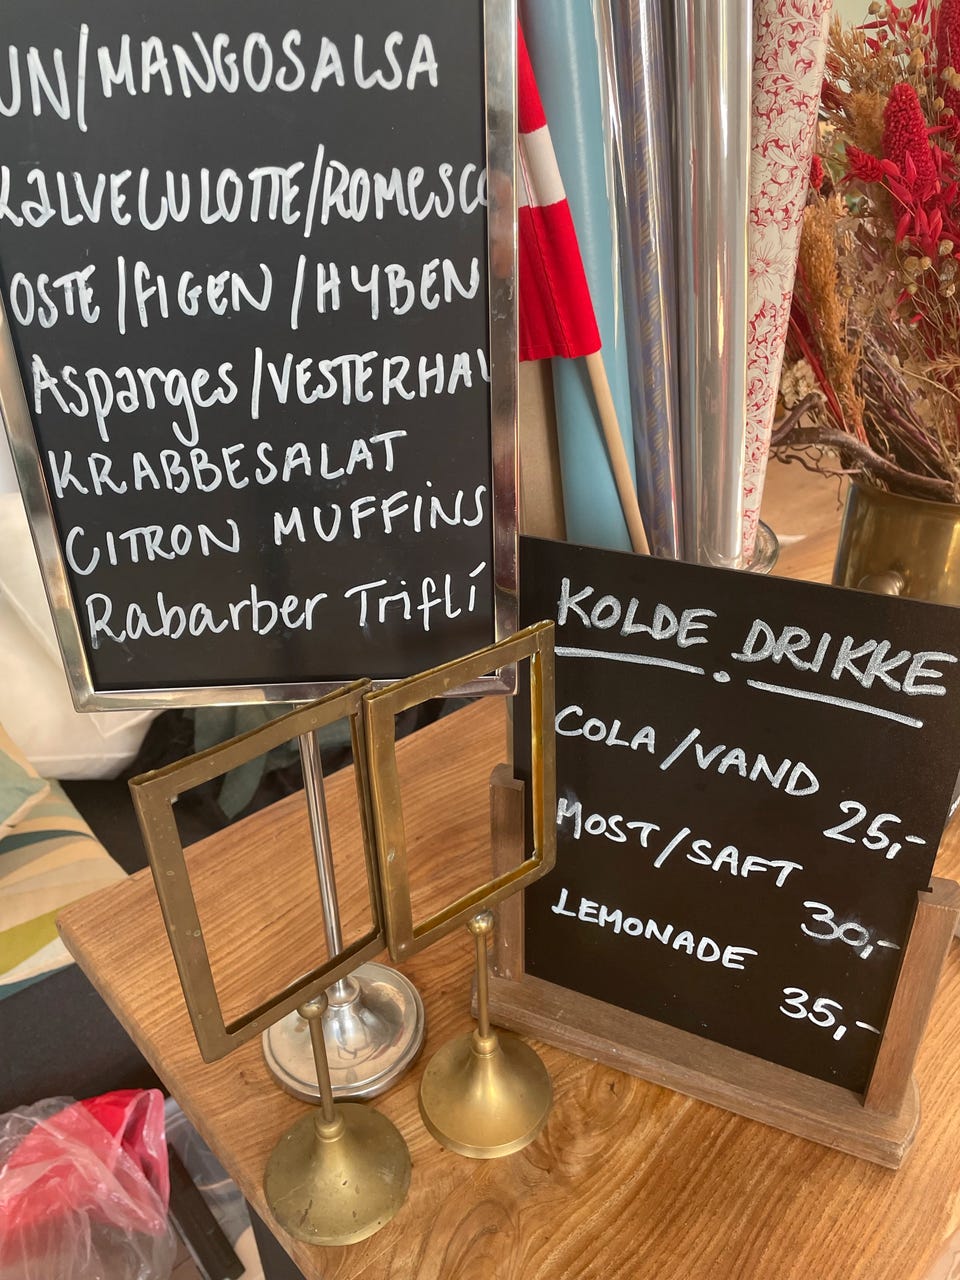 UN/MANGOSALSA
KALVECULOTTE/ROMESCO
OSTE/FIGEN/HYBEN
Asparges/VESTERHAV
KRABBESALAT
CITRON MUFFINS
Rabarber Trifli
KOLDE DRIKKE
COLA/VAND
25,-
MOST/SAFT
30,-
LEMONADE
35,-